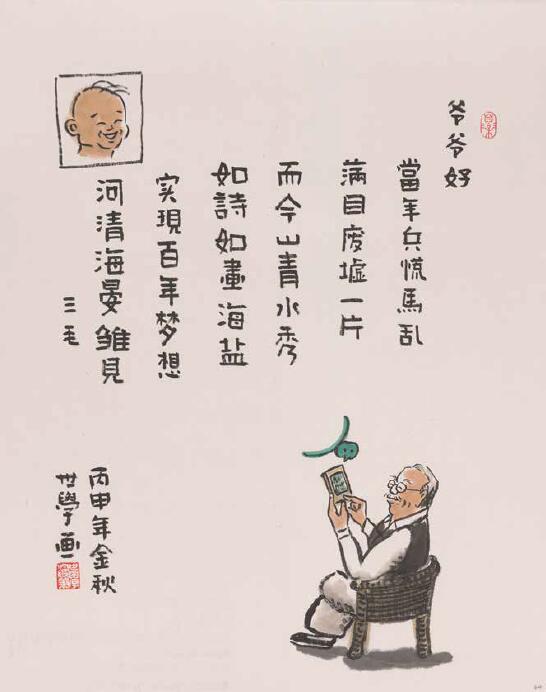 爷爷好
當年兵慌馬乱
满目废墟一片
而今山青水秀
如詩如畫海盐
实現百年梦想
河清海晏雏見
三毛
丙申年金秋
世學画